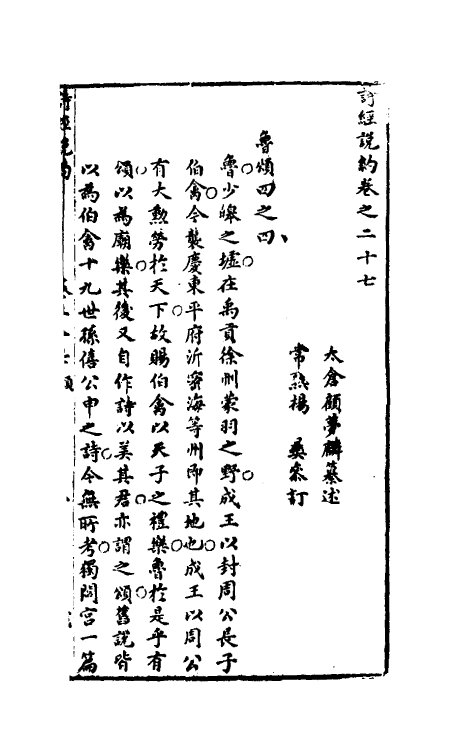 詩經說約卷之二十七
太倉顧夢麟纂述
常熟楊　彝叅訂
魯頌四之四
魯少皞之墟在禹貢徐州蒙羽之野成王以封周公長子
伯禽今襲慶東平府沂密海等州即其地也成王以周公
有大勲勞於天下故賜伯禽以天子之禮樂魯於是乎有
頌以為廟樂其後又自作詩以美其君亦謂之頌舊說皆
以為伯禽十九世孫僖公申之詩今無所考獨閟宮一篇
詩經說約